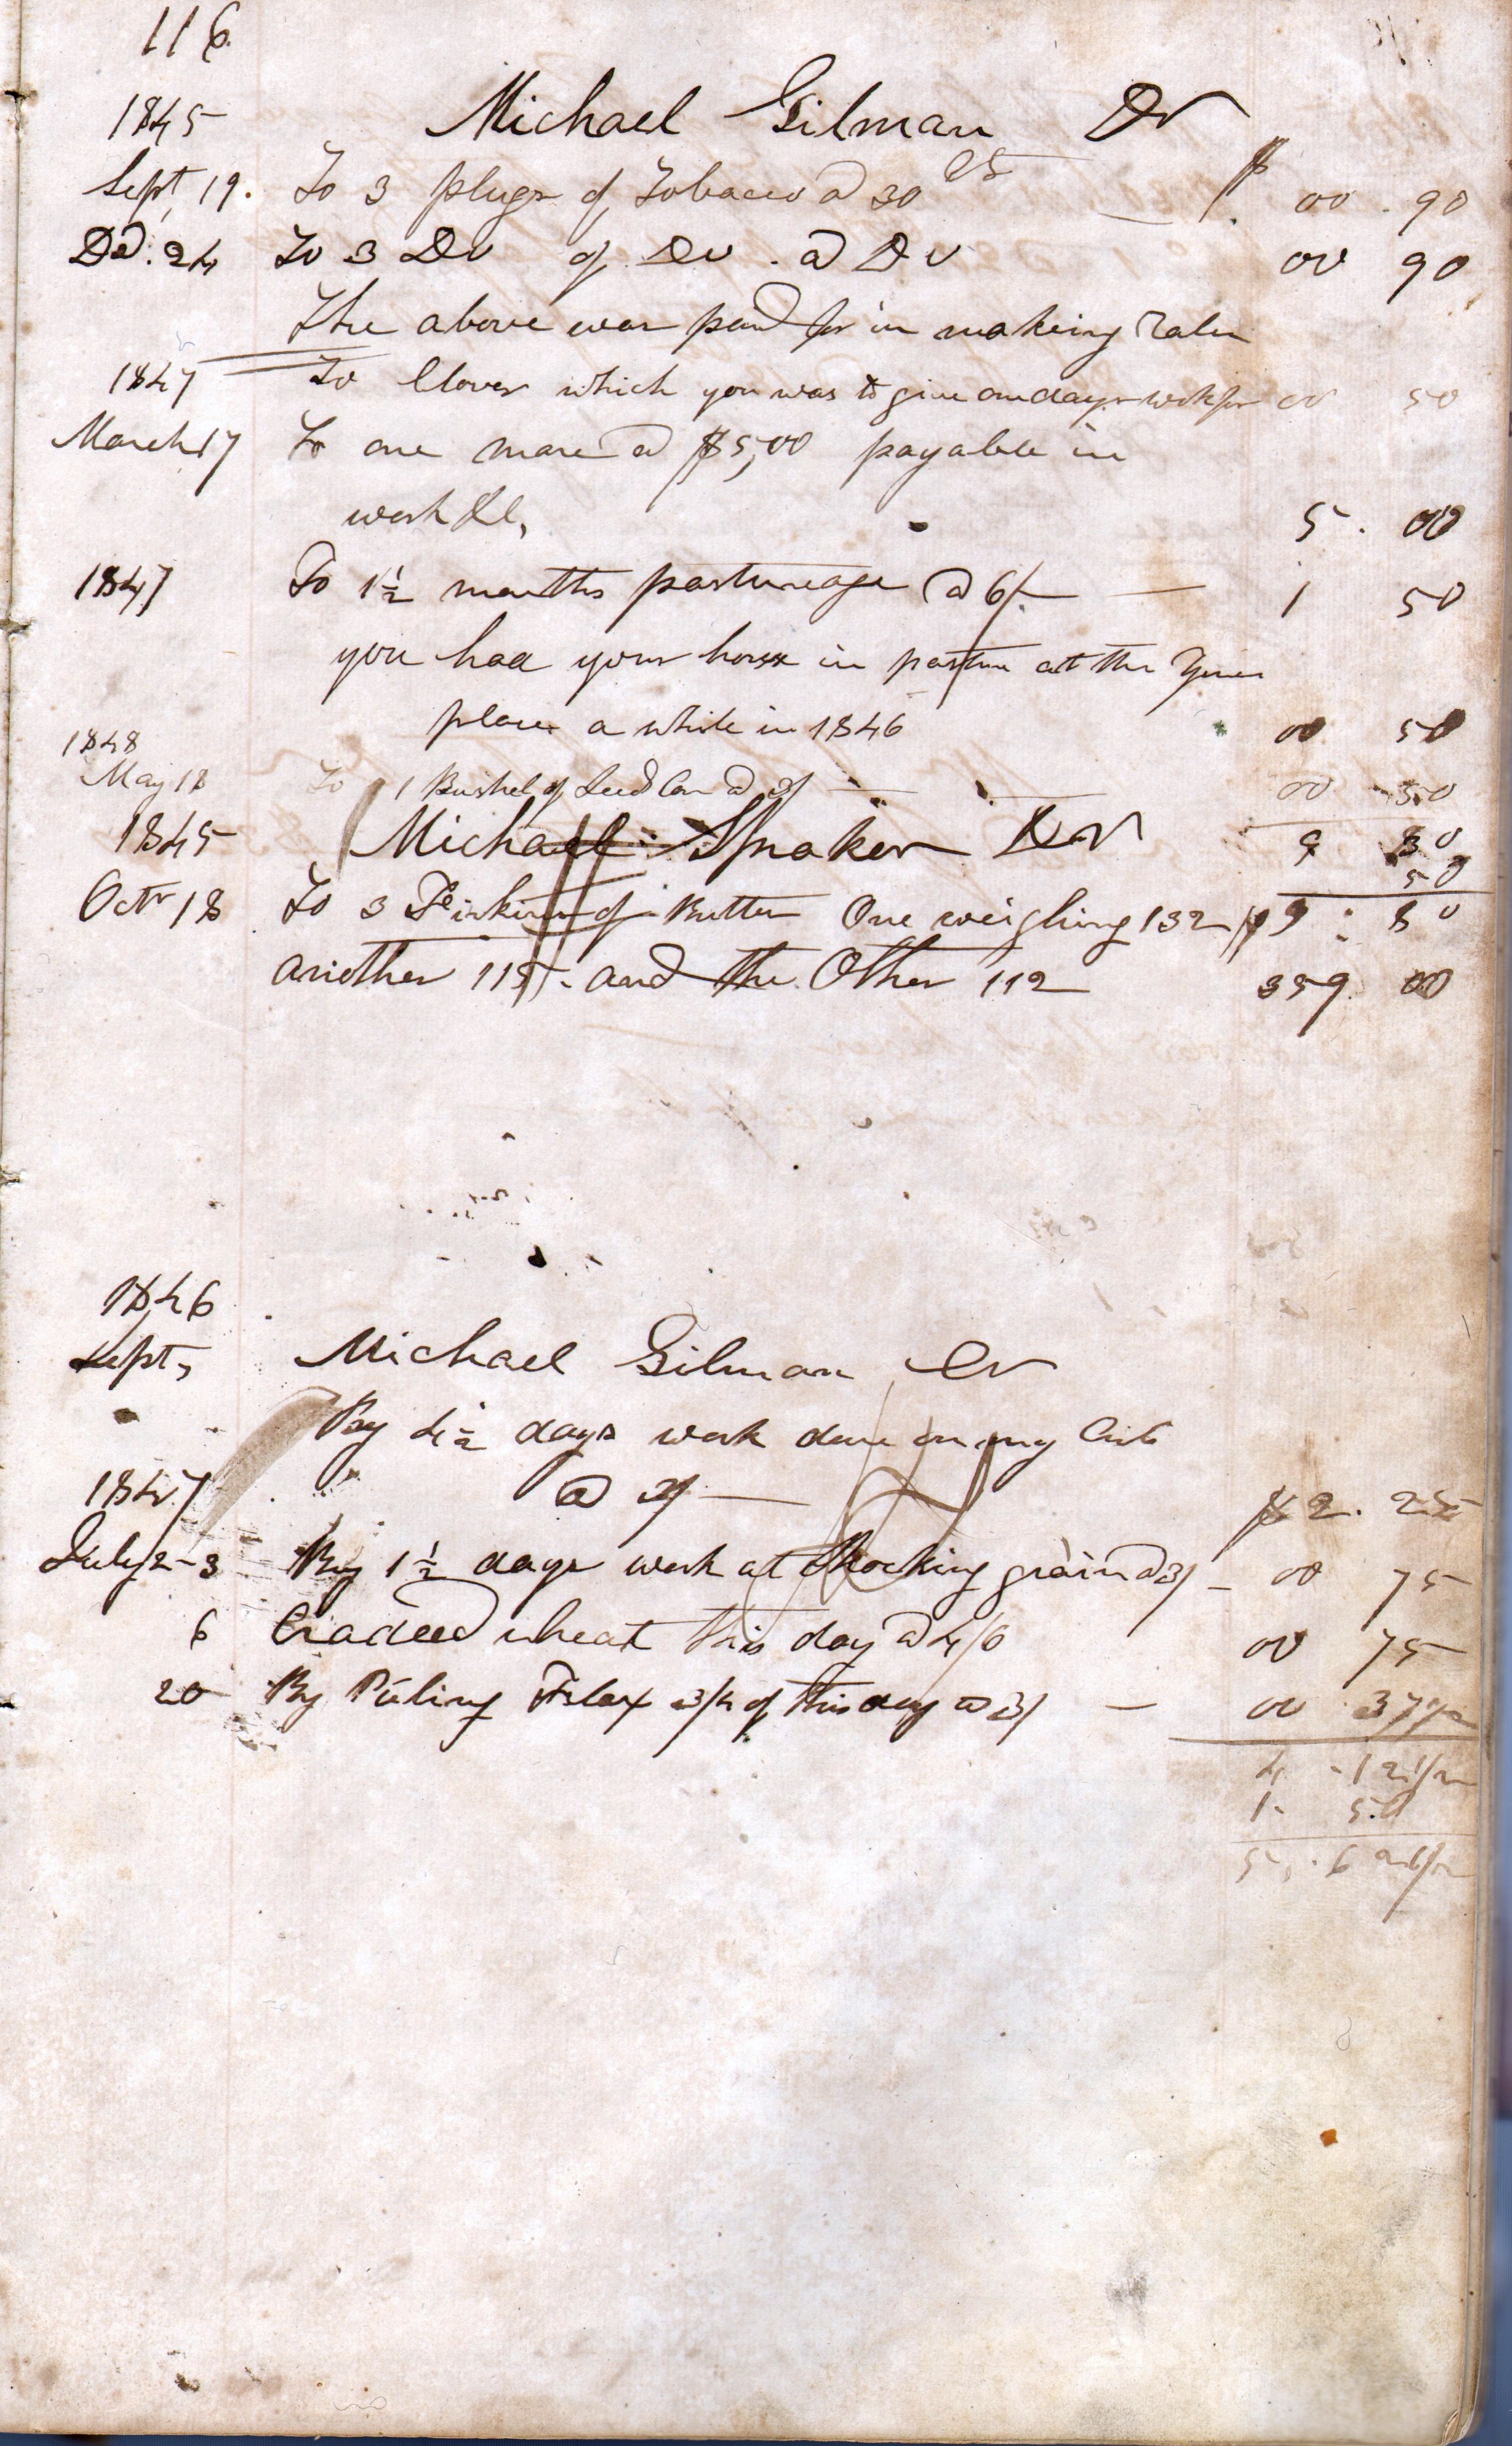 116
1845 Michael Gilman Dr
Sept, 19. To 3 plugs of Tobacco @ 30 cts $ 00.90
Dec. 24 To 3 Do of Do. @ Do 00 90
The above was paid for in making
1847 To Clover which you was to give one days work for 00 50
March 17 To one mare @ $5,00 payable in
work &c, 5.00
1847 To 1½ months pastureage @ 6/- 1 50
you had your horse in pasture at the
place a while in 1846 00 50
1848
May 18 To 1 Bushel of Seed Corn @ 00 50
1845 Michael Spraker Dr 9 30
50
Octr 18 To 3 Firkins of Butter One weighing 132 $9:80
another 115. and the Other 112 359. 00
1846
Sept, Michael Gilman Cr
By 4½ days work done on my
@ $2.25
1847
July 2-3 By 1½ days work at Shocking grain @ 3/ - 00 75
6 Cradled wheat this day @ 00 75
20 By Puling Flax 3/4 of this day @ 3/ - 00 37½
4.12½
1. 50
5.62½